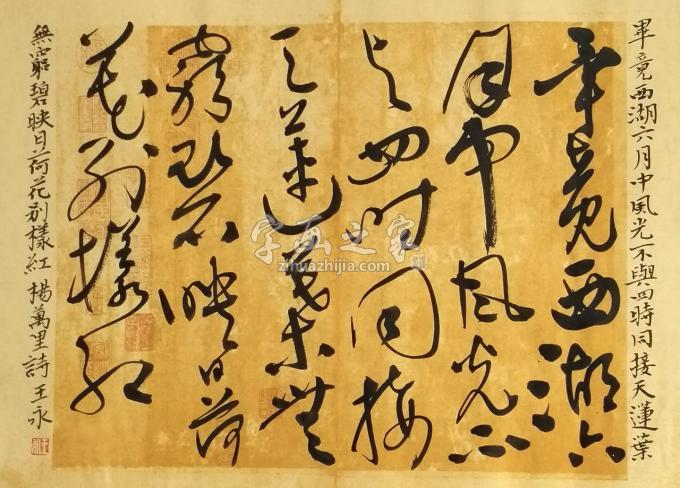 畢竟西湖六月中風光不與四時同接天蓮葉
畢竟西湖六
月中風光不
与四时同接
天蓮葉無
窮碧映日荷
花別樣紅
無窮碧映日荷花别樣紅 楊萬里詩 王永
字画之家
zihuazhijia.com